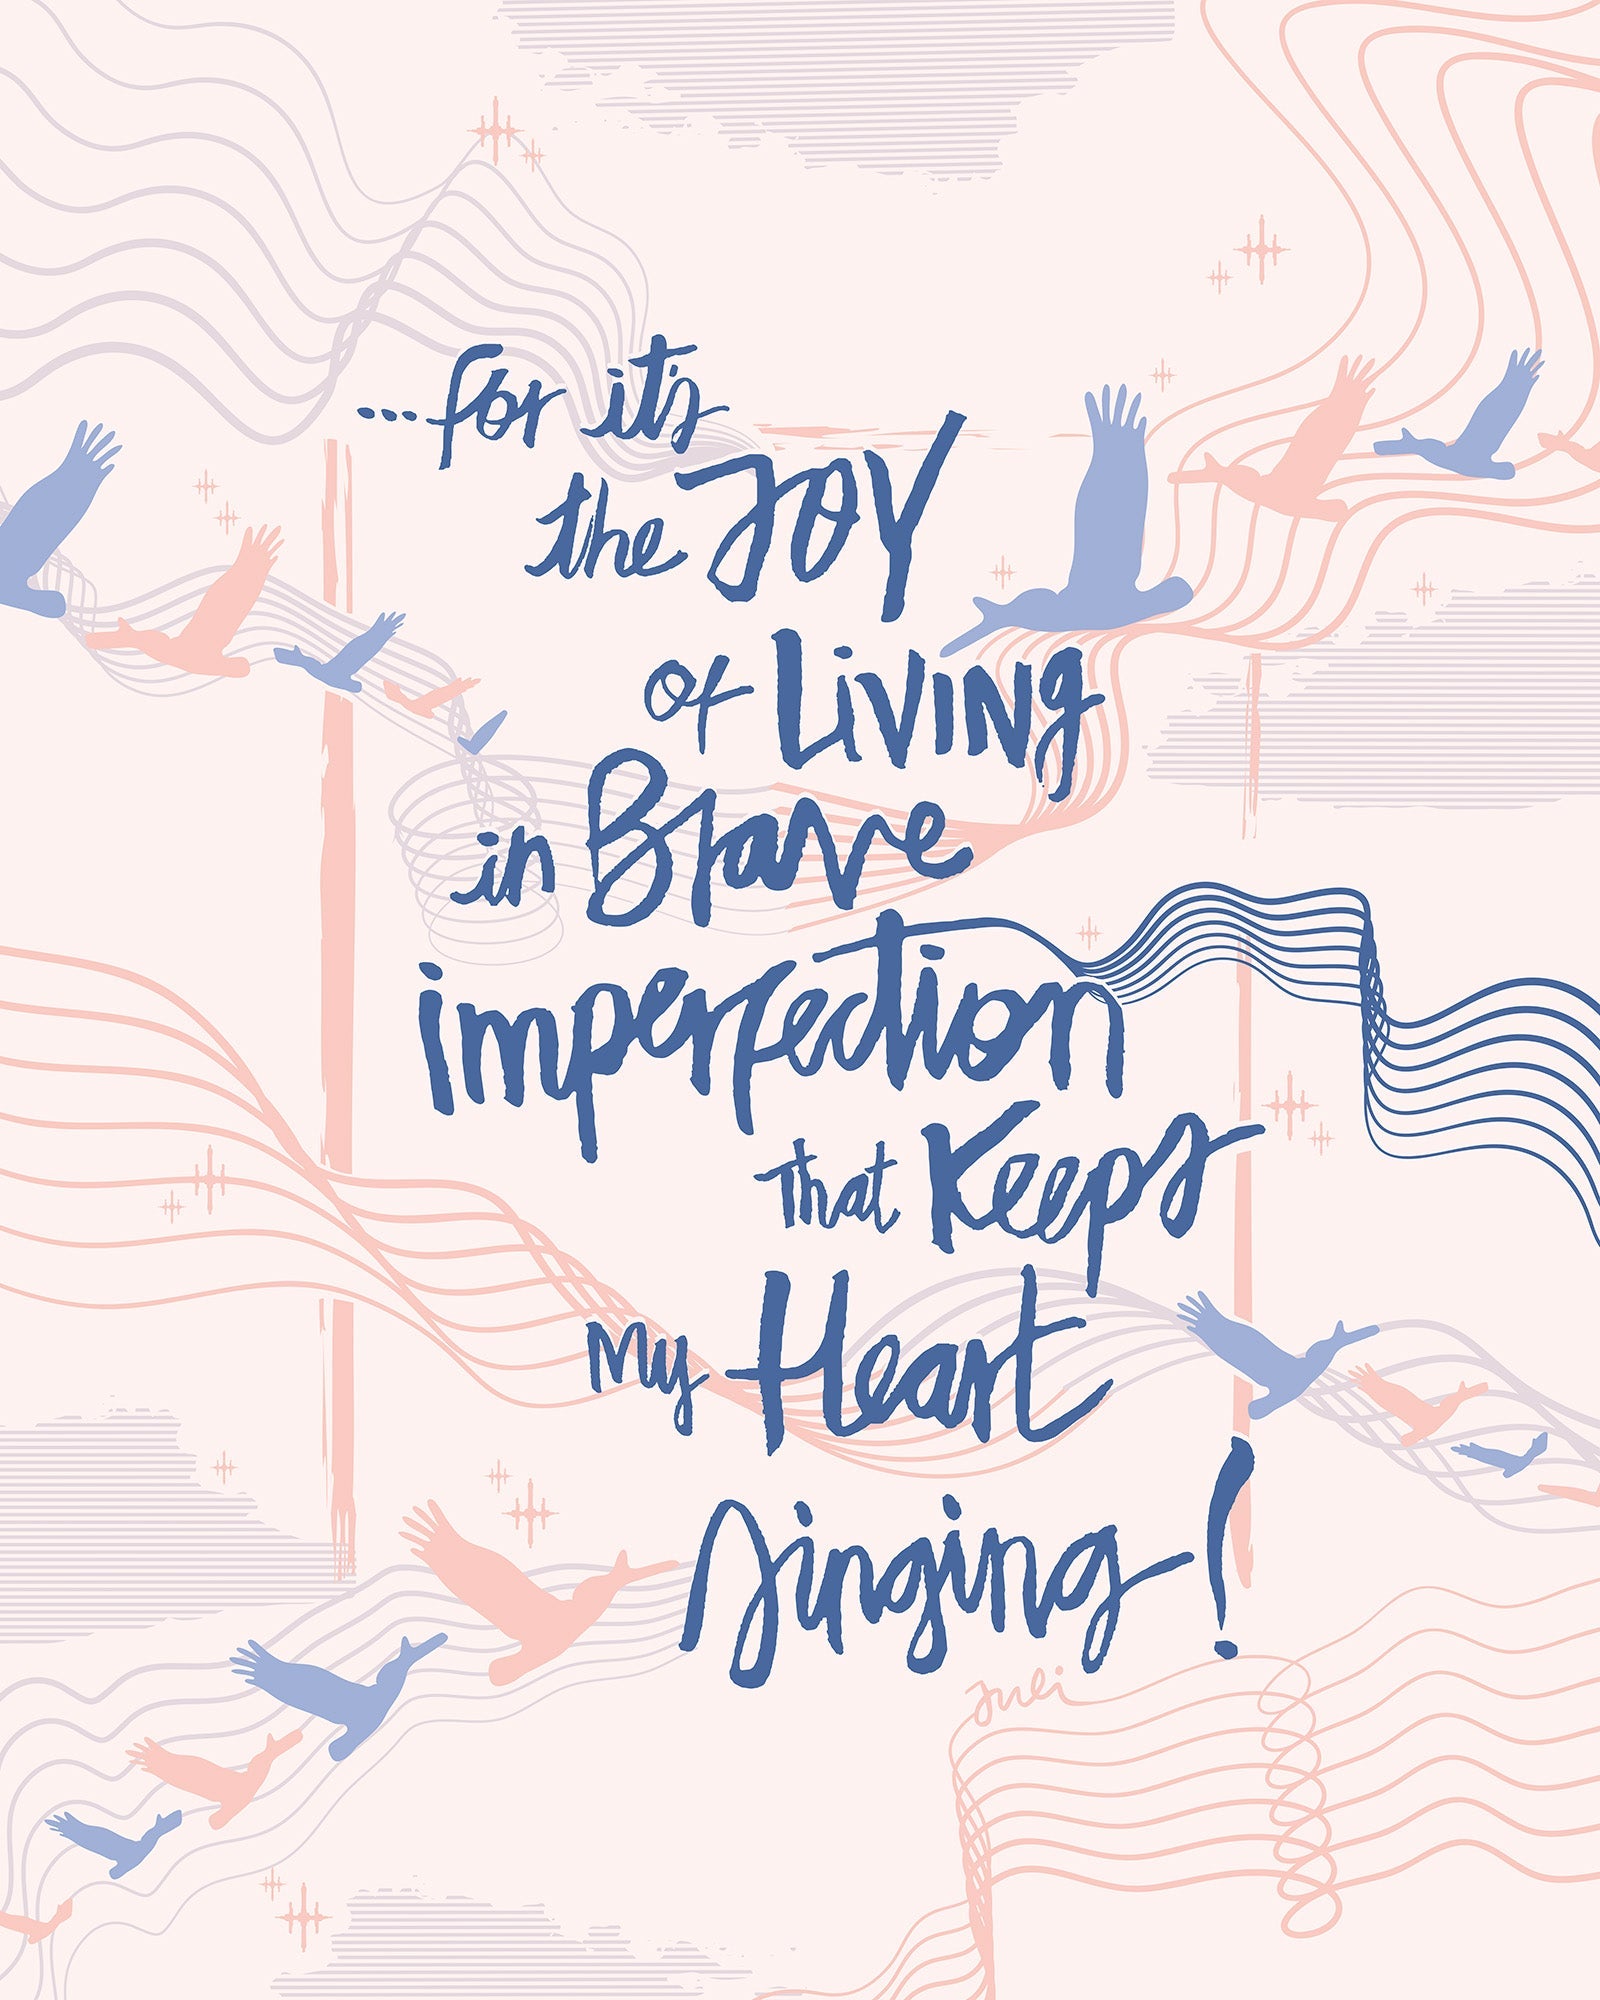 ...for it's
the JOY
of LiVING
in Brave
imperfection
That Keeps
My Heart
Singing!